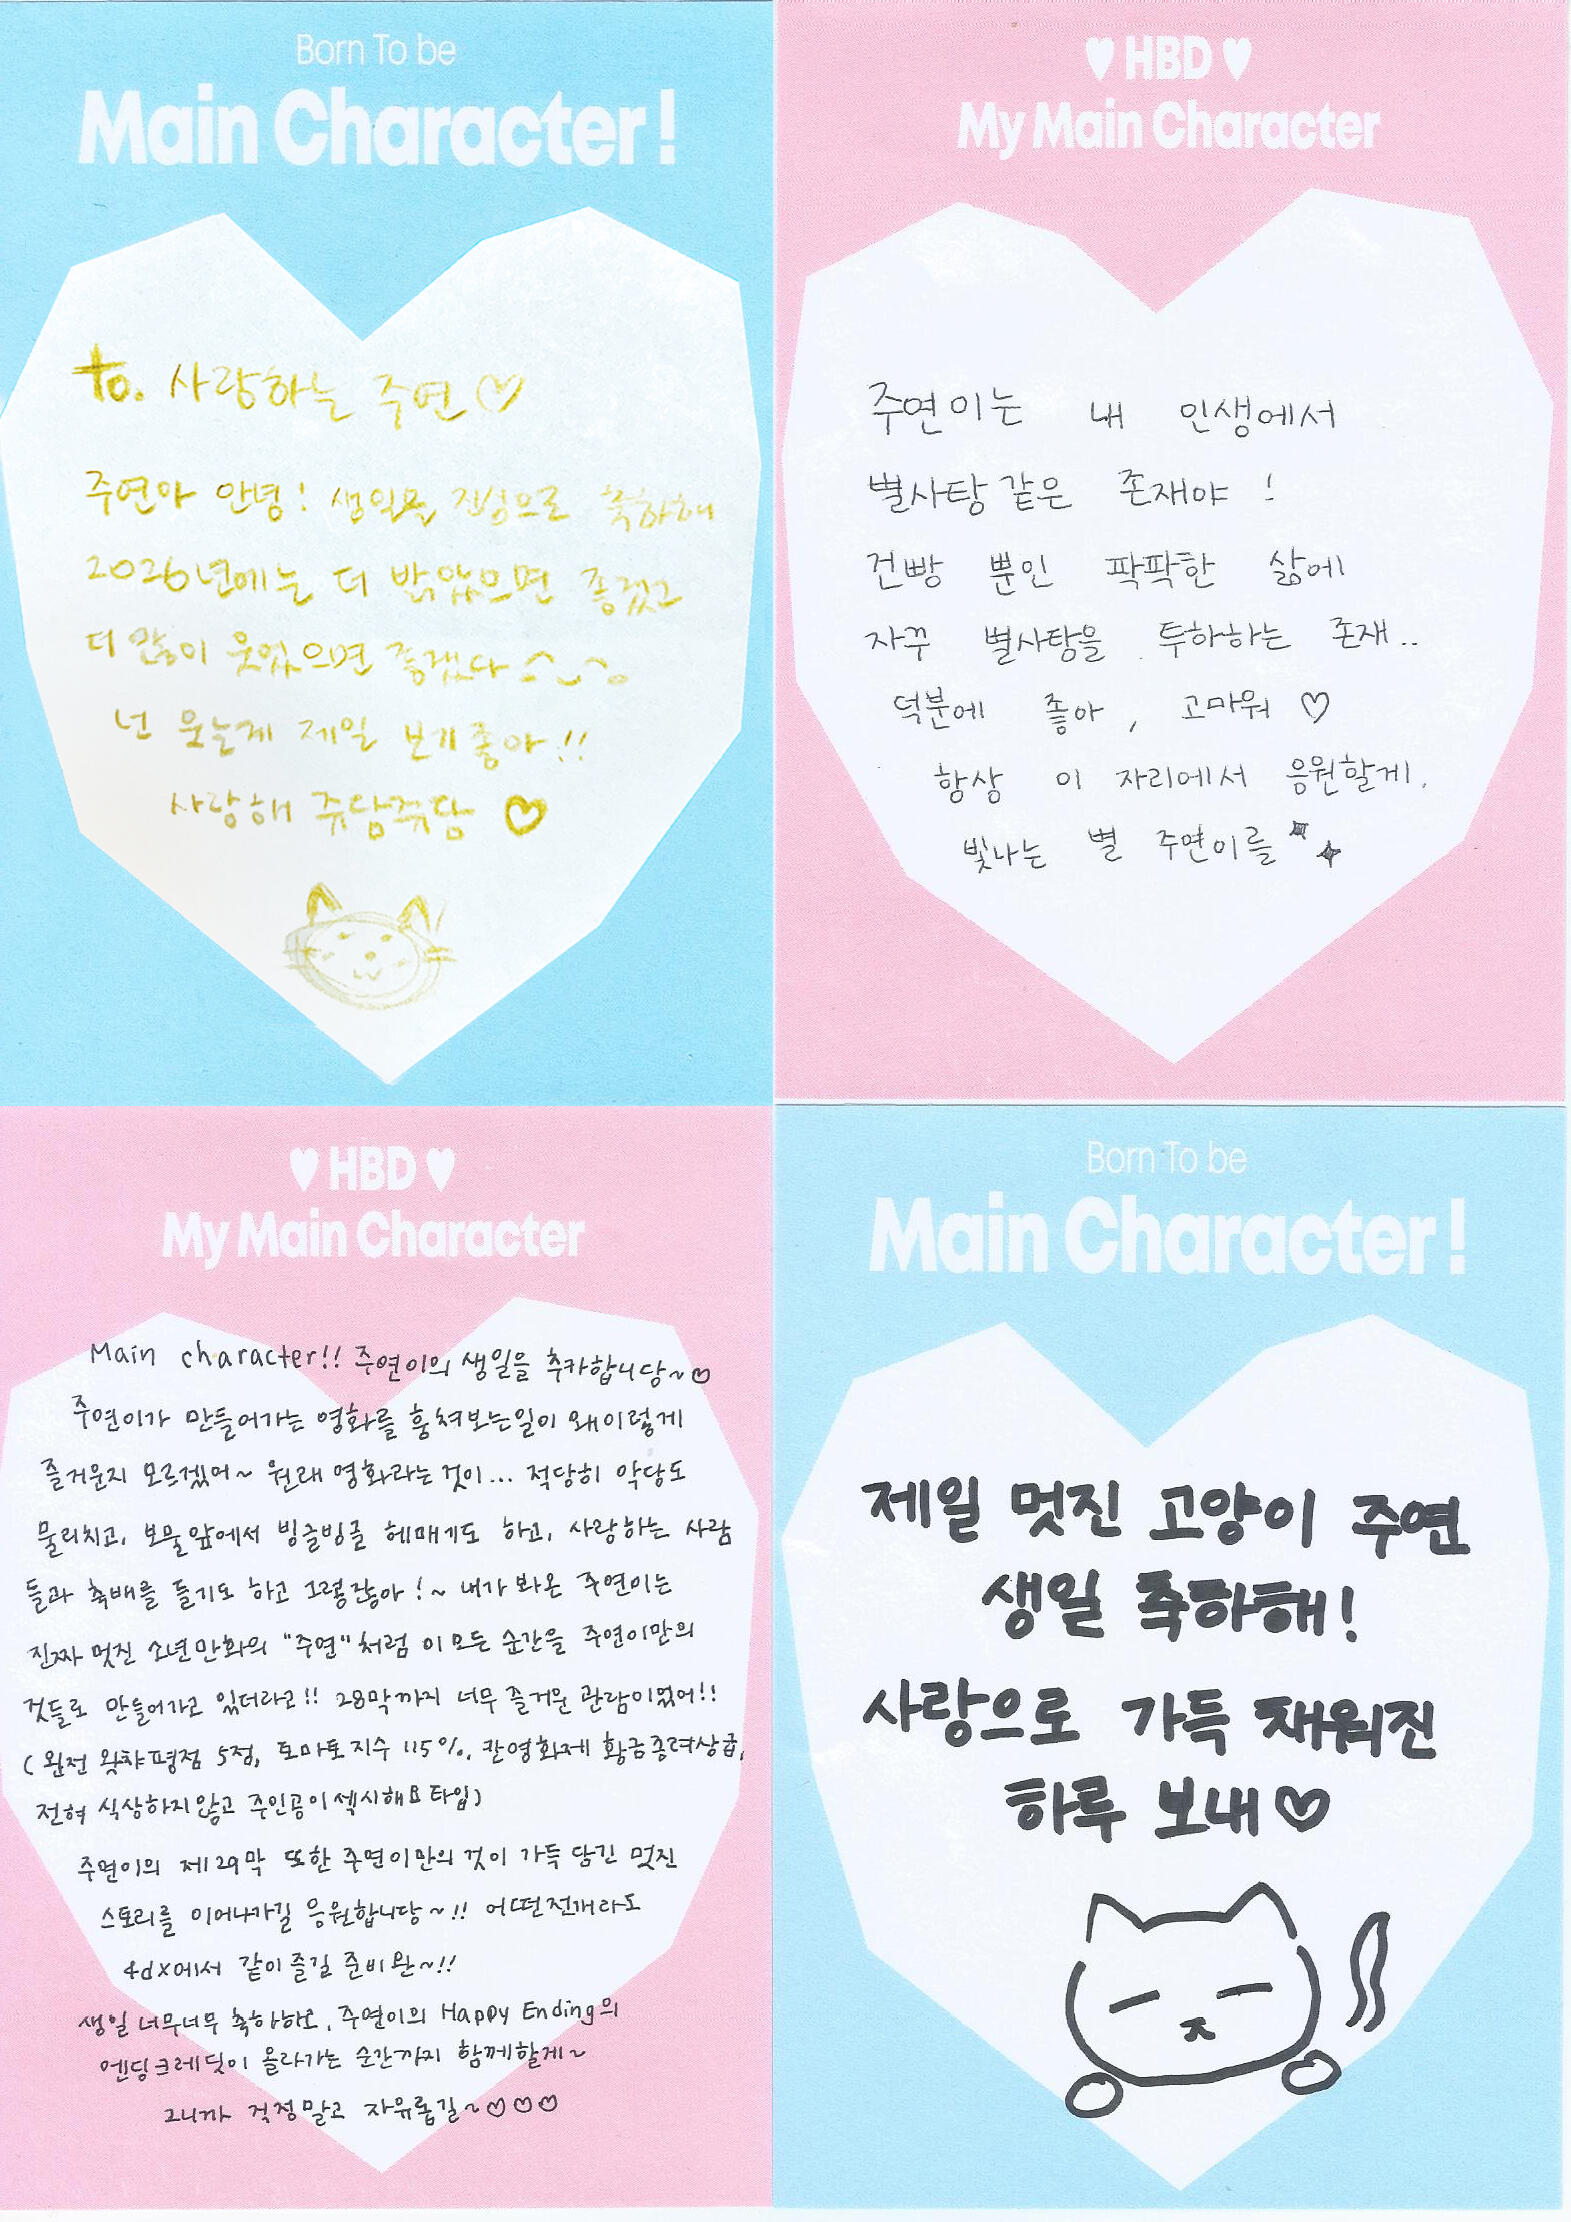 Born To be
Main Character!
to. 사랑하는 주연♡
주연아 안녕! 생일 진심으로 축하해
2026년에는 더 밝았으면 좋겠고
더 많이 웃었으면 좋겠다
넌 웃는게 제일 보기좋아!!
사랑해 쥬담쥬담 ♡
♥ HBD ♥
My Main Character
주연이는 내 인생에서
별사탕 같은 존재야 !
건빵 뿐인 팍팍한 삶에
자꾸 별사탕을 투하하는 존재..
덕분에 좋아, 고마워 ♡
항상 이 자리에서 응원할게.
빛나는 별 주연이를
♥ HBD ♥
My Main Character
Main character!! 주연이의 생일을 추카합니당~♡
주연이가 만들어가는 영화를 훔쳐보는일이 왜이렇게
즐거운지 모르겠어~ 원래 영화라는것이... 적당히 악당도
물리치고, 보물앞에서 빙글빙글 헤매기도 하고, 사랑하는 사람
들과 축배를 들기도 하고 그렇잖아!~ 내가 봐온 주연이는
진짜 멋진 소년만화의 "주연"처럼 이 모든 순간을 주연이만의
것들로 만들어가고 있더라고!! 28막까지 너무 즐거운 관람이었어!!
(완전 왓챠평점 5점, 토마토지수 115%, 칸영화제 황금종려상급,
전혀 식상하지않고 주인공이섹시해요타입)
주연이의 제29막 또한 주연이만의 것이 가득 담긴 멋진
스토리를 이어나가길 응원합니당~!! 어떤전개라도
4dx에서 같이즐길 준비완~!!
생일 너무너무 축하하고, 주연이의 Happy Ending의
엔딩크레딧이 올라가는 순간까지 함께할게~
그니까 걱정말고 자유롭길~♡♡♡
Born To be
Main Character!
제일 멋진 고양이 주연
생일 축하해!
사랑으로 가득 채워진
하루 보내♡